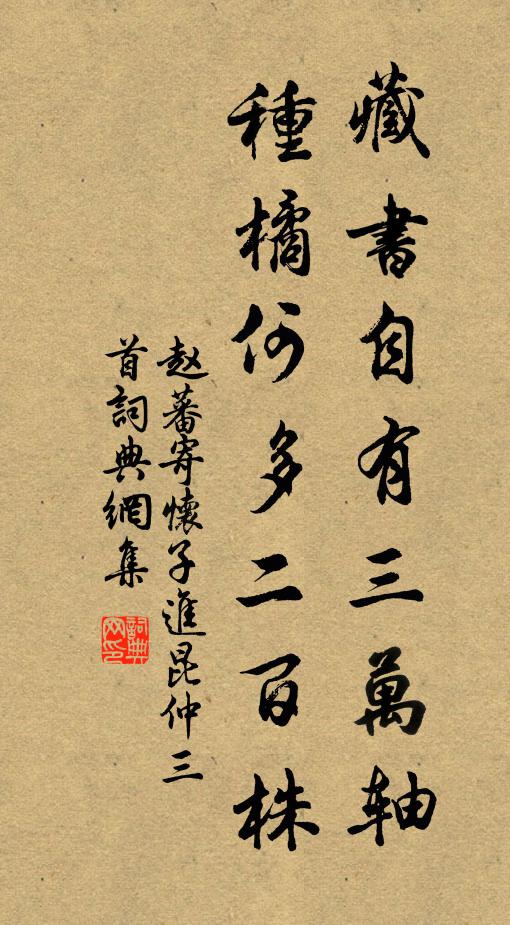 藏書自有三萬軸
種橘何多二百株
赵蕃寄懷子進昆仲三
首詞典網集
詞典
网印